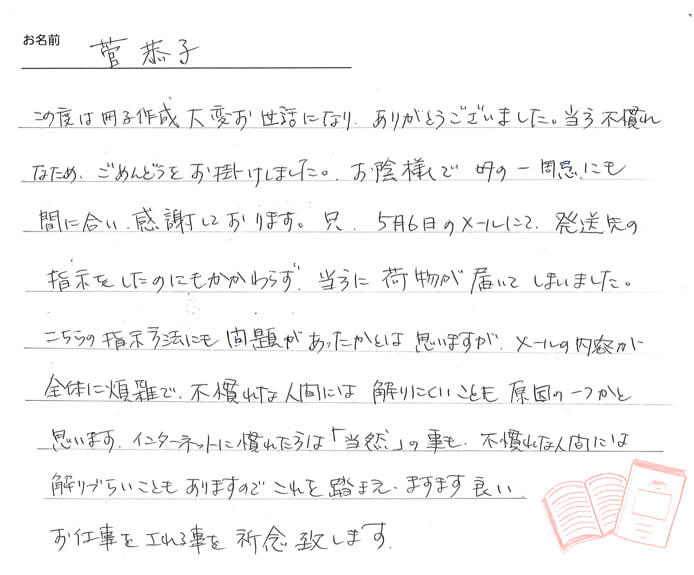 お名前 菅 恭子
この度は冊子作成大変お世話になり、ありがとうございました。当方不慣れ
なため、ごめんどうをお掛けしました。お陰様で 母の一周忌にも
間に合い、感謝しております。只、5月6日のメールにて、発送先の
指示をしたのにもかかわらず、当方に荷物が届いてしまいました。
こちらの指示方法にも問題があったかとは思いますが、メールの内容が
全体に煩雑で、不慣れな人間には解りにくいことも原因の一つかと
思います。インターネットに慣れた方は「当然」の事も、不慣れな人間には
解りづらいこともありますのでこれを踏まえ、ますます良い
お仕事をされる事を祈念致します。